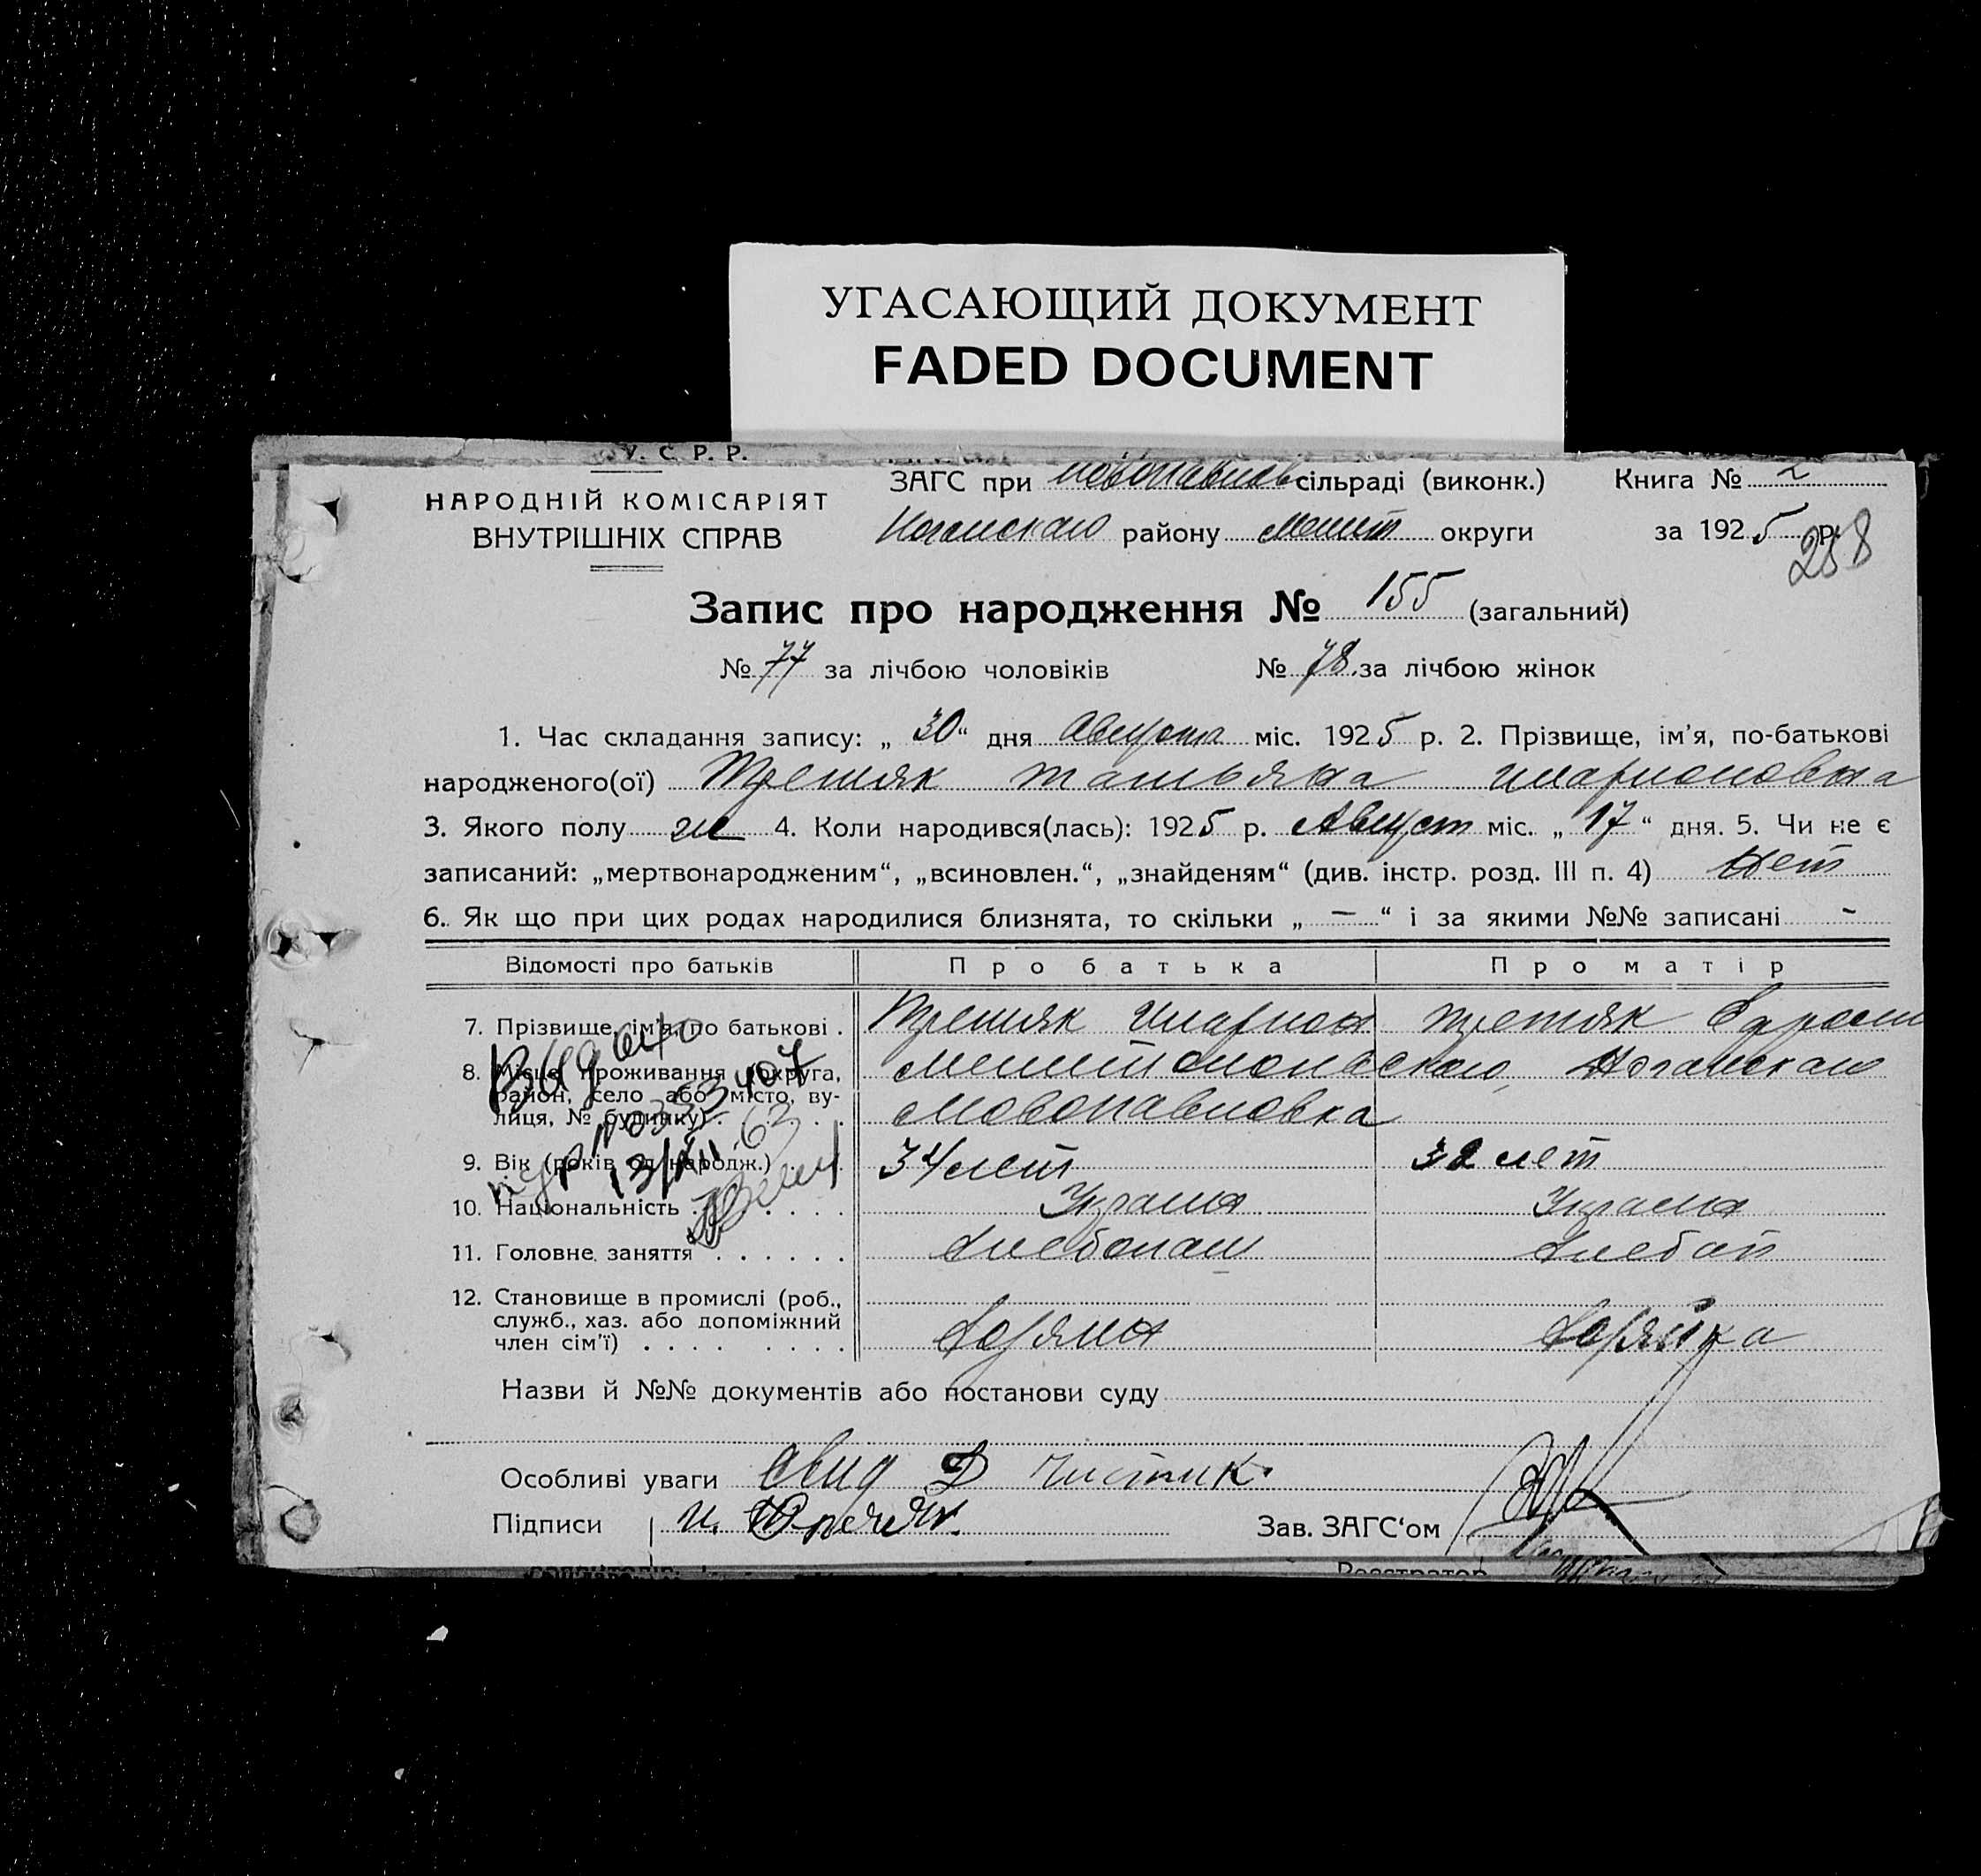 УГАСАЮЩИЙ ДОКУМЕНТ
FADED DOCUMENT
У. С. Р. Р.
НАРОДНІЙ КОМІСАРІЯТ
ВНУТРІШНІХ СПРАВ
ЗАГС при Новопавлов сільраді (виконк.) Книга № 2
Ногайского району Мелит округи за 1925 р.
258
Запис про народження № 155 (загальний)
№ 77 за лічбою чоловіків № 78 за лічбою жінок
1. Час складання запису: „ 30 “ дня Августа міс. 1925 р. 2. Прізвище, ім’я, по-батькові
народженого(ої) Третяк Татьяна Иларионовна
3. Якого полу ж 4. Коли народився(лась): 1925 р. Август міс. „ 17 “ дня. 5. Чи не є
записаний: „мертвонародженим“, „всиновлен.“, „знайденям“ (див. інстр. розд. III п. 4) Нет
6. Як що при цих родах народилися близнята, то скільки „ — “ і за якими №№ записані -
Відомості про батьків Про батька Про матір
7. Прізвище, ім’я, по батькові . Третяк Иларион Третяк
8. Місце проживання (округа, район, село або місто, ву-лиця, № будинку) . . . . Мелитопольского, Ногайского
Новопавловка
9. Вік (років од народж.) . . . 34 лет 32 лет
10. Національність . . . . . . Украин Украин
11. Головне заняття . . . . . . Хлебопаш Хлебоп
12. Становище в промислі (роб.,
служб., хаз. або допоміжний
член сім’ї) . . . . . . . . Хозяин Хозяйка
Видано
13/XII 63
Назви й №№ документів або постанови суду
Особливі уваги Чистик
Підписи И. Зав. ЗАГС‘ом
Реєстратор